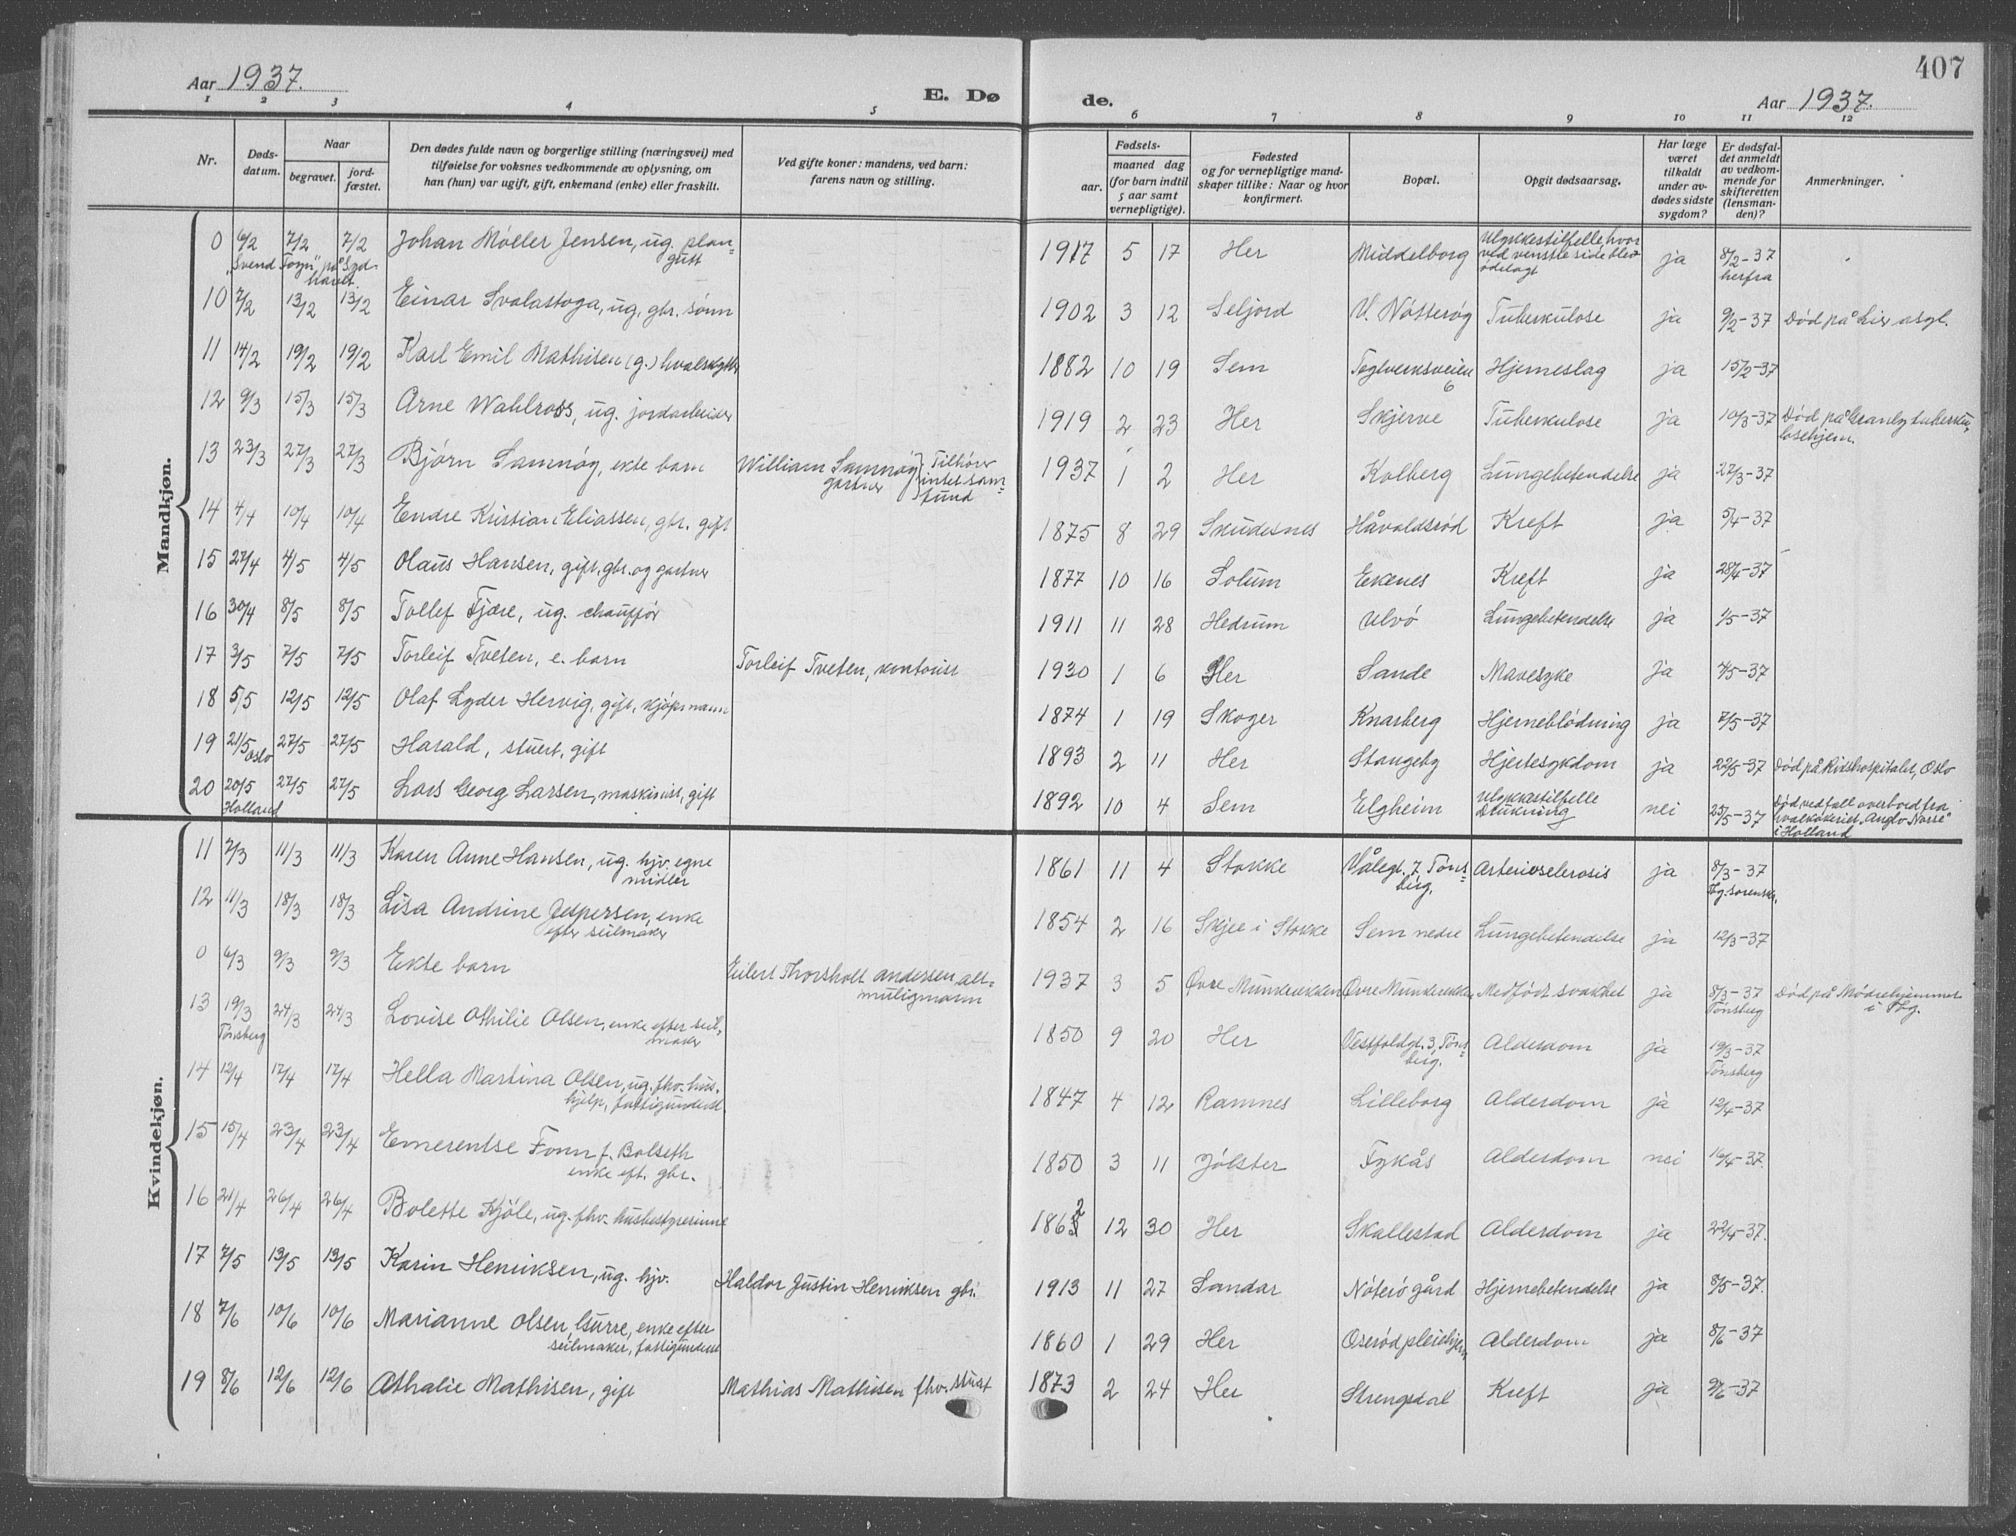 407
Aar 1937. E. Dø de. Aar 1937.
1 2 3 4 5 6 7 8 9 10 11 12
Nr. Døds-datum. Naar begravet. jord-fæstet. Den dødes fulde navn og borgerlige stilling (næringsvei) med tilføielse for voksnes vedkommende av oplysning, om han (hun) var ugift, gift, enkemand (enke) eller fraskilt. Ved gifte koner: mandens, ved barn: farens navn og stilling. Fødsels- aar. maaned dag (for barn indtil 5 aar samt vernepligtige). Fødested og for vernepligtige mand-skaper tillike: Naar og hvor konfirmert. Bopæl. Opgit dødsaarsag. Har læge været tilkaldt under av-dødes sidste sygdom? Er dødsfal-det anmeldt av vedkom-mende for skifteretten (lensman-den)? Anmerkninger.
Mandkjøn.
0 6/2 „Svend Foyn" på Syd-havet. 7/2 7/2 Johan Møller Jensen, ug. plan-gutt 1917 5 17 Her Middelborg Ulykkestilfelle, hvor ved venstre side blev ødelagt ja 8/2-37 herfra
10 7/2 13/2 13/2 Einar Svalastoga, ug, gbr. sønn 1902 3 12 Seljord V. Nøtterøy Tuberkulose ja 9/2-37 Død på Lier asyl.
11 14/2 19/2 19/2 Karl Emil Mathisen (g.) hvalskytter 1882 10 19 Sem Teglverksveien 6 Hjerneslag ja 15/2-37
12 9/3 15/3 15/3 Arne Wahlross, ug. jordarbeider 1919 2 23 Her Skjerve Tuberkulose ja 10/3-37 Død på Granly tuberku-losehjem.
13 23/3 27/3 27/3 Bjørn Samnøy, ekte barn William Samnøy gartner } Tilhører intet sam-fund 1937 1 2 Her Kolberg Lungebetendelse ja 27/3-37
14 4/4 10/4 10/4 Endre Kristian Eliassen, gbr. gift 1875 8 29 Skudesnes Håvaldsrød Kreft ja 5/4-37
15 27/4 4/5 4/5 Olaus Hansen, gift, gbr. og gartner 1877 10 16 Solum Ekenes Kreft ja 28/4-37
16 30/4 8/5 8/5 Tollef Fjære, ug. chauffør 1911 11 28 Hedrum Ulvø Lungebetendelse ja 1/5-37
17 3/5 7/5 7/5 Torleif Tveten, e. barn Torleif Tveten, kontorist 1930 1 6 Her Sande Mavesyke ja 4/5-37
18 5/5 12/5 12/5 Olaf Lyder Hervig, gift, kjøpmann 1874 1 19 Skoger Knarberg Hjerneblødning ja 7/5-37
19 21/5 Oslo 27/5 27/5 Harald, stuert, gift 1893 2 11 Her Stangeby Hjertesykdom ja 22/5-37 Død på Rikshospitalet, Oslo
20 20/5 Holland 27/5 27/5 Lars Georg Larsen, maskinist, gift 1892 10 4 Sem Elgheim Ulykkestilfelle Drukning nei 25/5-37 Død ved fall overbord fra hvalkokeriet „Anglo Norse" i Holland
Kvindekjøn.
11 7/3 11/3 11/3 Karen Anne Hansen, ug. hjv. egne midler 1861 11 4 Stokke Vålegt. 7, Tøns-berg. Arteriosclerosis ja 8/3-37 Tbg. sorenskr.
12 11/3 18/3 18/3 Lisa Andrine Jespersen, enke efter seilmaker 1854 2 16 Skjee i Stokke Sem nedre Lungebetendelse ja 12/3-37
0 6/3 9/3 9/3 Ekte barn Eilert Thorsholt Andersen, alt-muligmann 1937 3 5 Øvre Munkerekken Øvre Munkerekken Medfødt svakhet ja 8/3-37 Tønsberg Død på Mødrehjemmet i Tbg.
13 19/3 Tønsberg 24/3 24/3 Lovise Othilie Olsen, enke efter seil-maker 1850 9 20 Her Vestfoldgt. 3, Tøns-berg. Alderdom ja 19/3-37 Tønsberg
14 12/4 17/4 17/4 Hella Martina Olsen, ug. fhv. hus-hjelp, fattigunderst. 1847 4 12 Ramnes Lilleborg Alderdom ja 12/4-37
15 15/4 23/4 23/4 Emerentse Fonn f. Bolseth enke eft. gbr. 1850 3 11 Jølster Fykås Alderdom nei 16/4-37.
16 21/4 26/4 26/4 Bolette Kjøle, ug. fhv. husbestyrerinne 1862 12 30 Her Skallestad Alderdom ja 22/4-37.
17 7/5 13/5 13/5 Karin Henriksen, ug. hjv. Haldor Justin Henriksen gbr. 1913 11 27 Sandar Nøterø gård Hjernebetendelse ja 8/5-37.
18 7/6 10/6 10/6 Marianne Olsen, Burre, enke efter seilmaker, fattigunderst 1860 1 29 Her Oserød pleiehjem Alderdom ja 8/6-37
19 8/6 12/6 12/6 Athalie Mathisen, gift Mathias Mathisen fhv. stuert 1873 2 24 Her Strengsdal Kreft ja 9/6-37